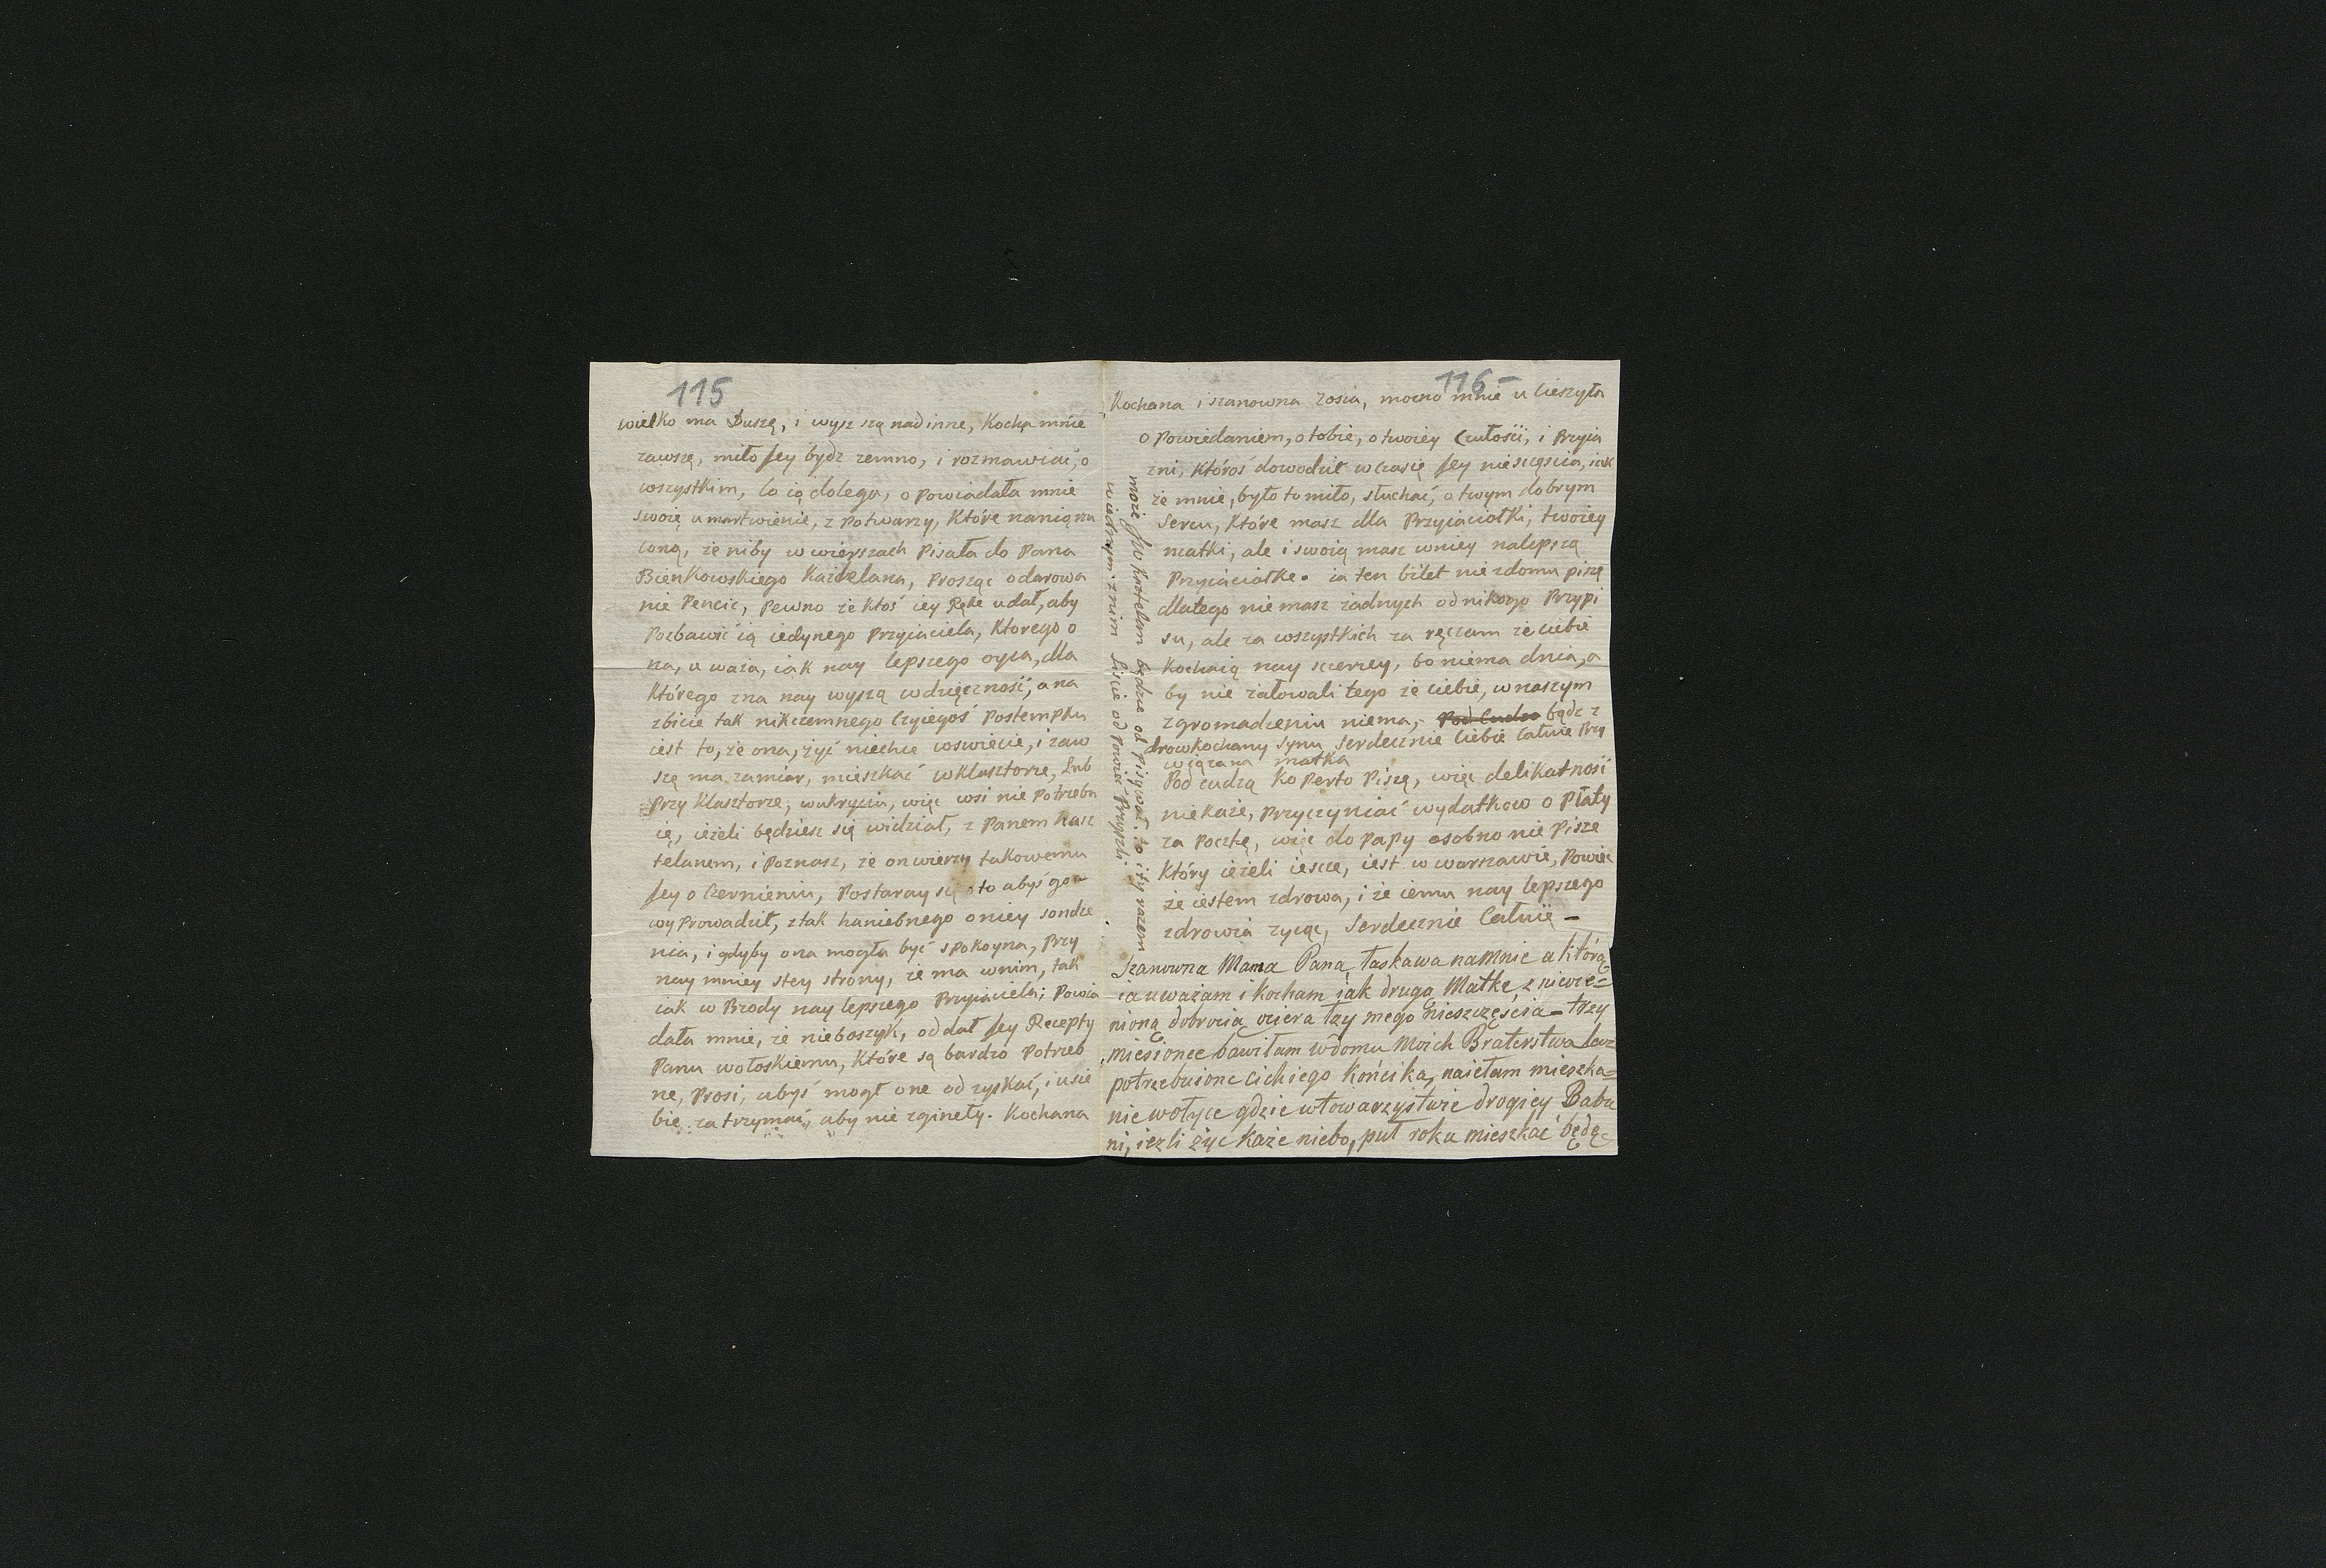 115
wielko ma Duszę, i wysz szą nad inne, Kocha mnie
zawszę, miło Jey bydz zemno, i rozmawiać, o
wszystkim, co ią dolega, o powiadała mnie
swoię umartwienie, z Potwarzy, Które nanią rzu
coną, że niby w wierszach Pisała do Pana
Bienkowskiego Kasztelana, prosząc odarowa
nie Pencic, pewno że Ktoś iey Rękę udał, aby
Pozbawić ią iedynego Przyiaciela, Ktorego o
na, u waża, iak nay lepszego oyca, dla
Którego zna nay wyszą wdzięczność, a na
zbicie tak nikczemnego Czyiegoś Postempku
iest to, że ona, żyć niechce wswiecie, i zaw
szę ma zamiar, mieszkać w Klasztorze, Lub
Przy Klasztorze, wukryciu, więc wsi nie Potrzebu
ię, ieżeli będziesz się widział, z Panem Kasz
telanem, i Poznasz, że on wierzy takowemu
Jey o Czernieniu, Postaray się o to abyś go
wyProwadził, ztak haniebnego oniey sondze
nia, i gdyby ona mogła być spokoyna, Przy
nay mniey stey strony, że ma wnim, tak
iak w Brody nay lepszego Przyiaciela; Powia
dała mnie, że nieboszyk, oddał Jey Recepty
Panu wołoskiemu, Które są bardzo Potrzeb
ne, Prosi, abyś mogł one odzyskać, i u sie
bie zatrzymać, aby nie zgineły. Kochana
116
Kochana i szanowna Zosia, mocno mnie u cieszyła
o Powiedaniem, o tobie, o twoiey Czułości, i Przyia
zni, Któroś dowodził wczasię Jey nieszczęscia, iak
że mnie, było to miło, słuchać, o twym dobrym
Sercu, Które masz dla Przyiaciołki, twoiey
matki, ale i swoią masz wniey nalepszą
Przyiaciołke. ia ten bilet nie zdomu piszę
dlatego nie masz żadnych od nikogo Przypi
su, ale za wszystkich za ręczam że ciebie
Kochaią nay szerzey, bo niema dnia, a
by nie żałowali tego że ciebie, w naszym
zgromadzeniu niema,- Pod Cudzo bądz z
drow kochany synu, Serdecznie Ciebie Całuie Przy
wiązana matka
Pod cudzą Koperto Piszę, więc delikatność
nie każe, przyczyniać wydatkow o Płaty
za Pocztę, więc do PaPy osobno nie Piszę
Który ieżeli ieszcze, iest w warszawie, Powiec
że iestem zdrowa, i że iemu nay lepszego
zdrowia życzę, Serdecznie Całuię -
Szanowna Mama Pana, łaskawa na mnie a którą
ia uważam i kocham iak drugą Matkę, z niocie=
nioną dobrocią ociera łzy mego nieszczęscia - trzy
miesionce bawiłam w domu Moich Braterstwa lecz
potrzebuionc cichiego końcika, naiełam mieszka=
nie wołyce gdzie w towarzystwie drogiey Babu
ni, iezli żyć każe niebo, puł roku mieszkać będę
może JW Kasztelan będzie od pisywał. to i ty razem
z nim liście od Powiedź Przyszli